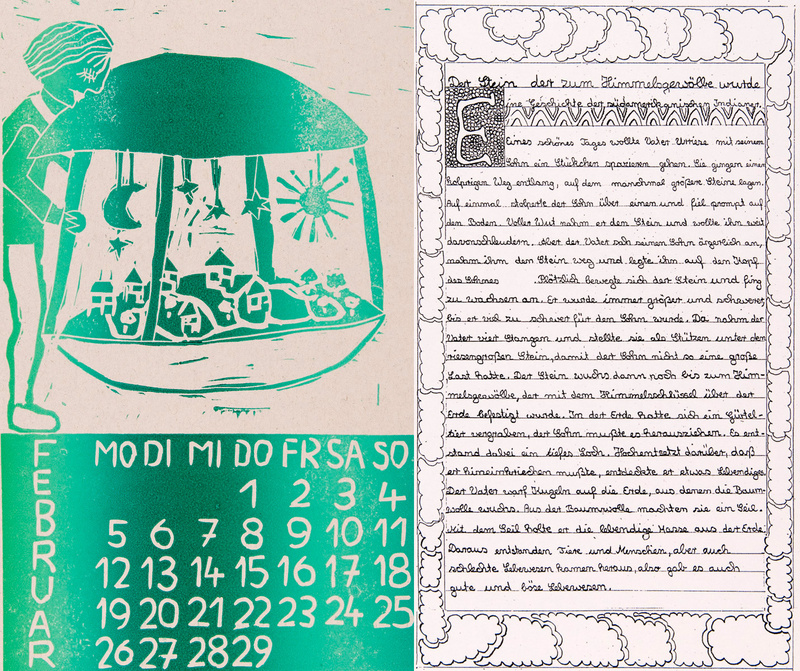 FEBRUAR
MO DI MI DO FR SA SO
1 2 3 4
5 6 7 8 9 10 11
12 13 14 15 16 17 18
19 20 21 22 23 24 25
26 27 28 29
Der Stein der zum Himmelsgewölbe wurde
eine Geschichte der südamerikanischen Indianer.
E
Eines schönes Tages wollte Vater Uriese mit seinem
Sohn ein Stückchen spazieren gehen. Sie gingen einen
holprigen Weg entlang, auf dem manchmal größere Steine lagen.
Auf einmal stolperte der Sohn über einen und fiel prompt auf
den Boden. Voller Wut nahm er den Stein und wollte ihn weit
davonschleudern. Aber der Vater sah seinen Sohn ärgerlich an,
nahm ihm den Stein weg und legte ihn auf den Kopf
des Sohnes Plötzlich bewegte sich der Stein und fing
zu wachsen an. Er wurde immer größer und schwerer
bis er viel zu schwer für den Sohn wurde. Da nahm der
Vater vier Stangen und stellte sie als Stützen unter den
riesengroßen Stein, damit der Sohn nicht so eine große
Last hatte. Der Stein wuchs dann noch bis zum Him-
melsgewölbe, der mit dem Himmelsschlüssel über der
Erde befestigt wurde. In der Erde hatte sich ein Gürtel-
tier vergraben, der Sohn mußte es herausziehen. Es ent-
stand dabei ein tiefes Loch. Hochentsetzt darüber, daß
er hineinkriechen mußte, entdeckte er etwas Lebendiges
Der Vater warf Kugeln auf die Erde, aus denen die Baum-
wolle wuchs. Aus der Baumwolle machten sie ein Seil.
Mit dem Seil holte er die lebendige Masse aus der Erde.
Daraus entstanden Tiere und Menschen, aber auch
schlechte Lebewesen kamen heraus, also gab es auch
gute und böse Lebewesen.